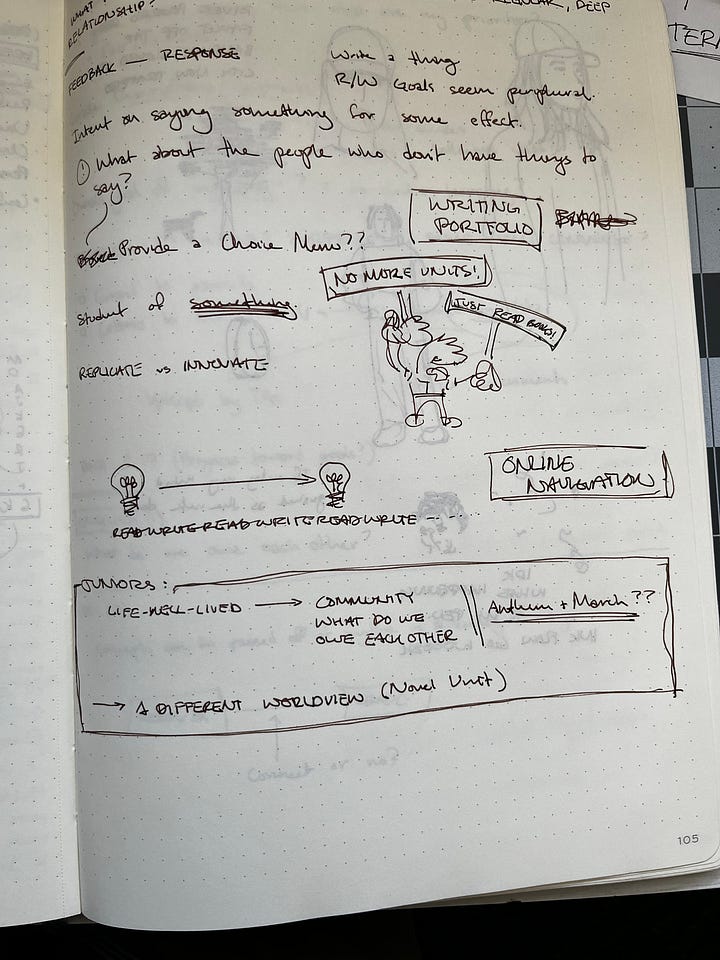 WHAT
RELATIONSHIP?
REGULAR, DEEP
FEEDBACK — RESPONSE
Write a thing
R/W Goals seem peripheral.
Intent on saying something for some effect.
! What about the people who don't have things to
say?
WRITING
PORTFOLIO
Provide a Choice Menu??
NO MORE UNITS!
JUST READ BOOKS!
Student of something.
REPLICATE vs INNOVATE
ONLINE
NAVIGATION
READWRITEREADWRITEREADWRITE ----
JUNIORS:
LIFE-WELL-LIVED → COMMUNITY
WHAT DO WE
OWE EACH OTHER
Anthem + March??
→ A DIFFERENT WORLDVIEW (Novel Unit)
105